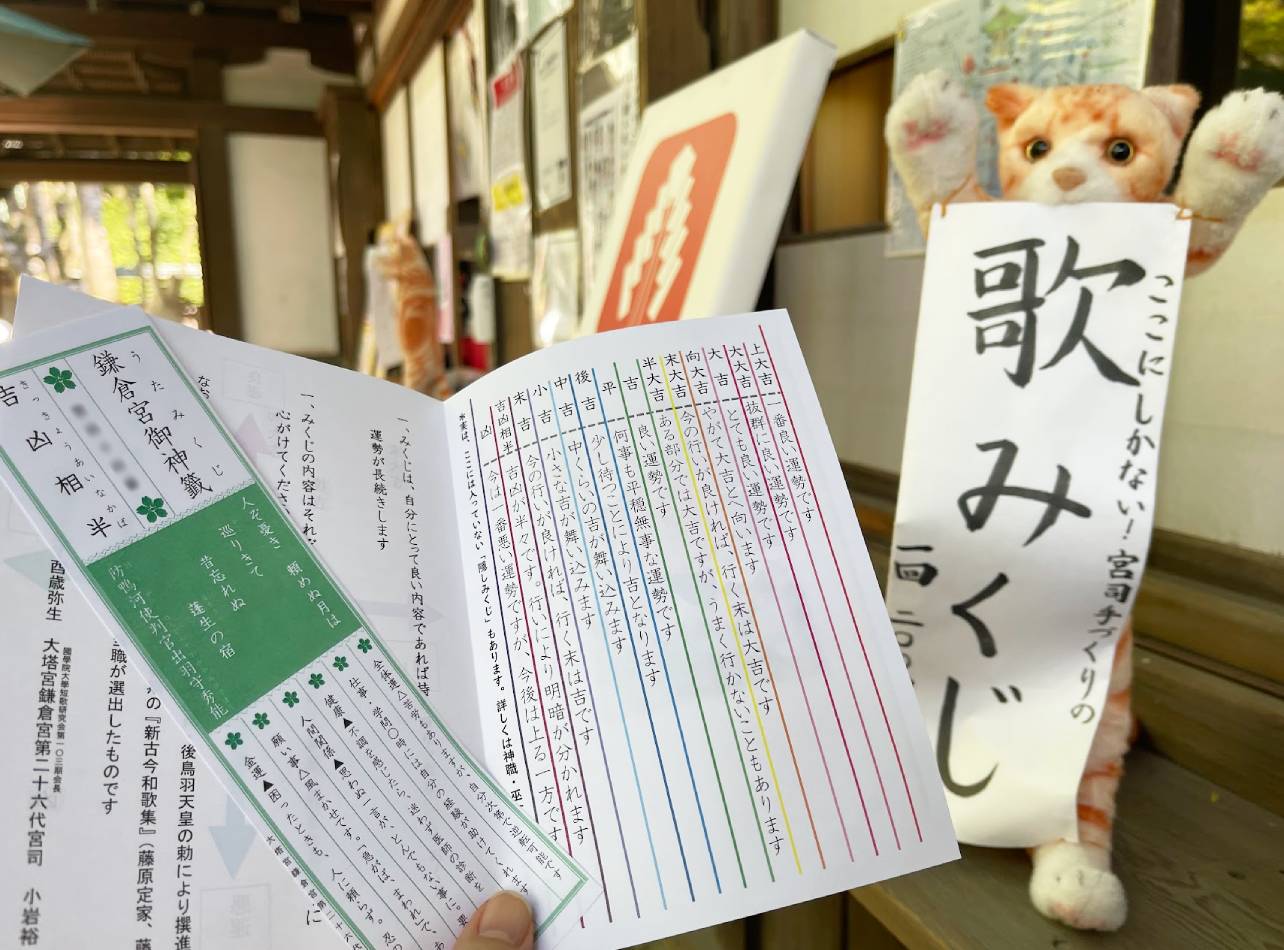 歌みくじ
ここにしかない！宮司手づくりの
一回
上大吉 一番良い運勢です
大大吉 抜群に良い運勢です
大吉 とても良い運勢です
向大吉 やがて大吉へと向います
末大吉 今の行いが良ければ、行く末は大吉です
半大吉 ある部分では大吉ですが、うまく行かないこともあります
吉 良い運勢です
平 何事も平穏無事な運勢です
後吉 少し待つことにより吉となります
中吉 中くらいの吉が舞い込みます
小吉 小さな吉が舞い込みます
末吉 今の行いが良ければ、行く末は吉です
吉凶相半 吉凶が半々です。行いにより明暗が分かれます
凶 今は一番悪い運勢ですが、今後は上る一方です
※実は、ここには入っていない「隠しみくじ」もあります。詳しくは神職・巫
一、みくじは、自分にとって良い内容であれば
運勢が長続きします
一、みくじの内容はそれ
心がけてくださ
鎌倉宮御神籤
うたみくじ
吉凶相半
きっきょうあいなかば
人ぞ憂き 頼めぬ月は
巡りきて
昔忘れぬ
蓬生の宿
防鴨河使判官出羽守秀能
全体運△苦労もありますが、自分次第で逆転可能です
仕事・学問〇時には自分の経験が助けてくれます
健康▲不調を感じたら、迷わず医師の診断を
人間関係▲思わぬ一言が、とんでもない事に。要
願い事△風まかせです。「急がば、まわれ」で、あ
金運▲困ったときも、人に頼らず。忍の
大塔宮鎌倉宮第二十六代
後鳥羽天皇の勅により撰進
の『新古今和歌集』（藤原定家、藤
職が選出したものです
國學院大學短歌研究会第一〇三期会長
大塔宮鎌倉宮第二十六代宮司 小岩裕
酉歳弥生